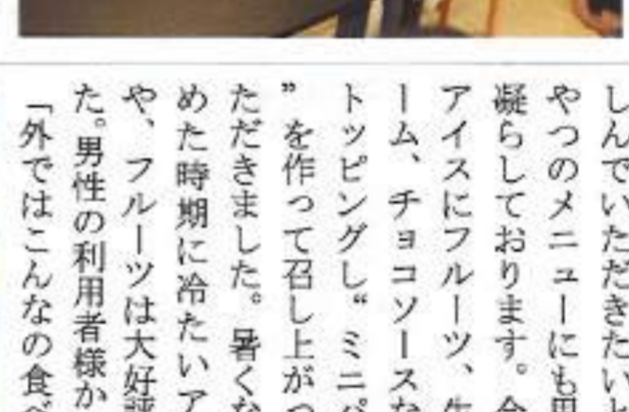 しんでいただきたいと
やつのメニューにも
凝らしております。
アイスにフルーツ、
ーム、チョコソースな
トッピングし“ミニパ
”を作って召し上がっ
ただきました。暑くな
めた時期に冷たいア
や、フルーツは大好評
た。男性の利用者様か
「外ではこんなの食べ